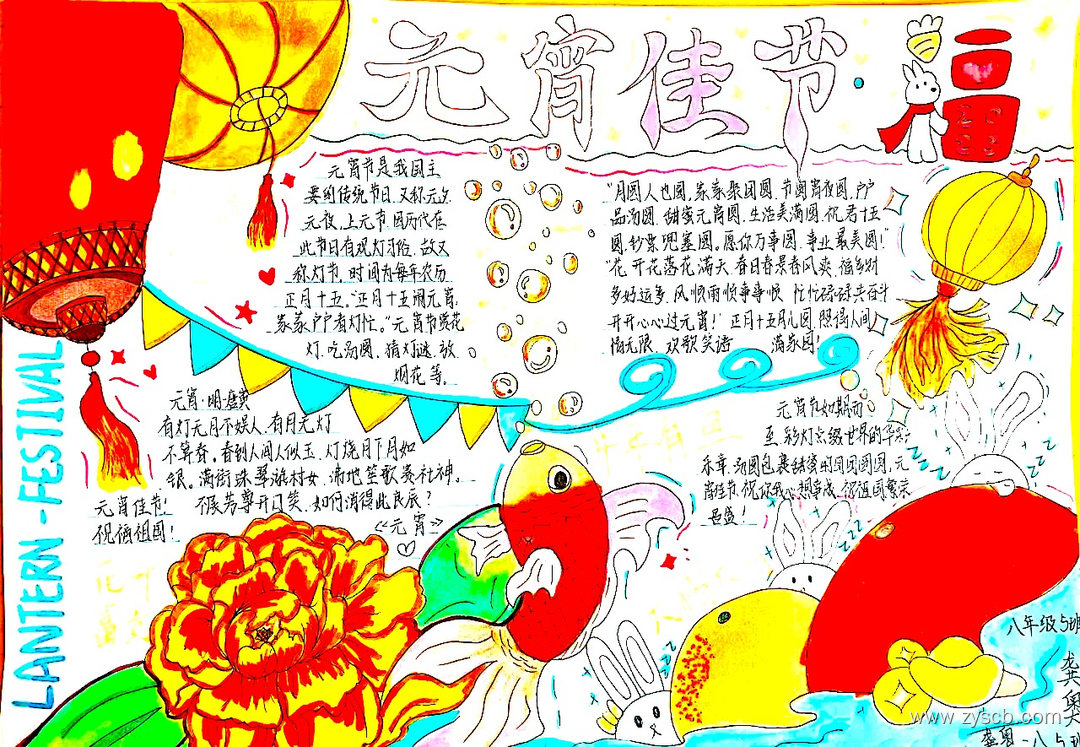 元宵佳节
元宵节是我国主
要的传统节日，又称元夕
元夜，上元节，因历代在
此节日有观灯习俗，故又
称灯节，时间为每年农历
正月十五，"正月十五闹元宵，
家家户户看灯忙。"元宵节赏花
灯，吃汤圆，猜灯谜，放
烟花等。
"月圆人也圆，家家聚团圆，节闹宵夜圆，户户
品汤圆，甜蜜元宵圆，生活美满圆，祝君十五
圆，钞票兜里圆。愿你万事圆，事业最美圆！"
"花开花落花满天，春日春景春风爽，福多财
多好运多，风顺雨顺事事顺，忙忙碌碌共奋斗
开开心心过元宵！"正月十五月儿圆，照得人间
情无限，欢歌笑语 满家园！
元宵·明·唐寅
有灯无月不娱人，有月无灯
不算春。春到人间人似玉，灯烧月下月如
银。满街珠翠游村女，沸地笙歌赛社神。
不展芳尊开口笑，如何消得此良辰？
《元宵》
元宵佳节！
祝福祖国！
元宵节如期而
至，彩灯点缀世界的华彩
乐章，汤圆包裹甜蜜的团团圆圆，元
宵佳节，祝你我心想事成，祝祖国繁荣
昌盛！
LANTERN-FESTIVAL
zzz
八年级5班
龚奥
www.zyscb.com
龚奥-八5班